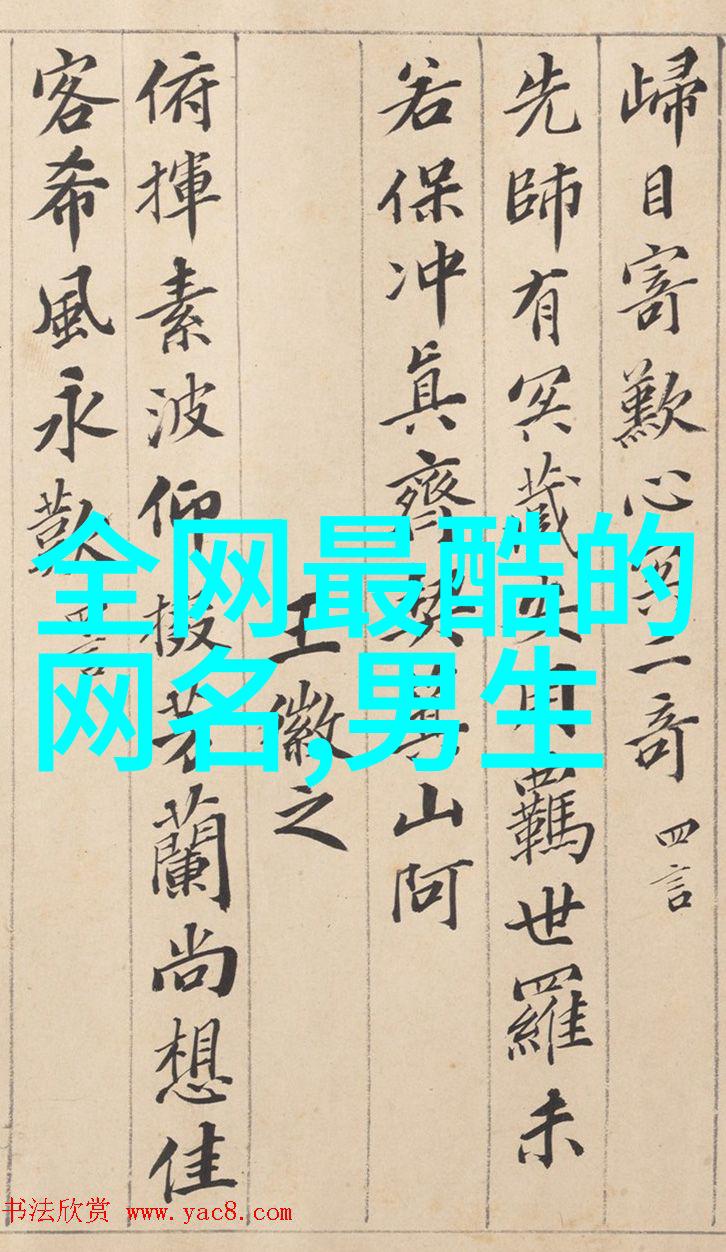 歸目寄歎心冥二奇 四言
先師有冥藏安用羈世羅未
若保冲眞齊契箕山阿
王徽之
俯揮素波仰掇芳蘭尚想佳
客希風永歎 四言
全网最酷的
网名,男生
书法欣赏 www.yac8.com